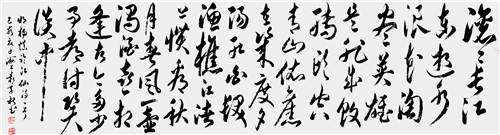 滚々长江
东逝水
浪花淘
尽英雄
是非成败
转头空
青山依旧
在几度夕
阳红白发
渔樵江渚
上惯看秋
月春风一壶
浊酒喜相
逢古今多少
事都付笑
谈中